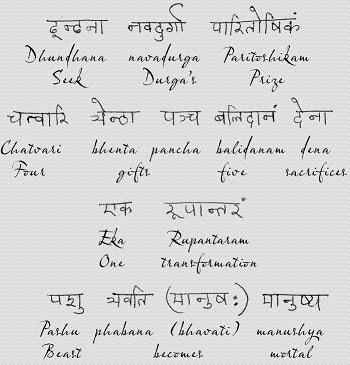 ढ्न्ढना नवदुर्गा पारितोषिकं
Dhundhana navadurga Paritoshikam
Seek Durga's Prize
चत्वारि त्रेन्ठा पञ्च बलिदानं देना
Chatvari bhenta pancha balidanam dena
Four gifts five sacrifices
एक रूपान्तरं
Eka Rupantaram
One transformation
पशु त्रवति (मानुष:) मानुष्य
Pashu phabana (bhavati) manushya
Beast becomes mortal